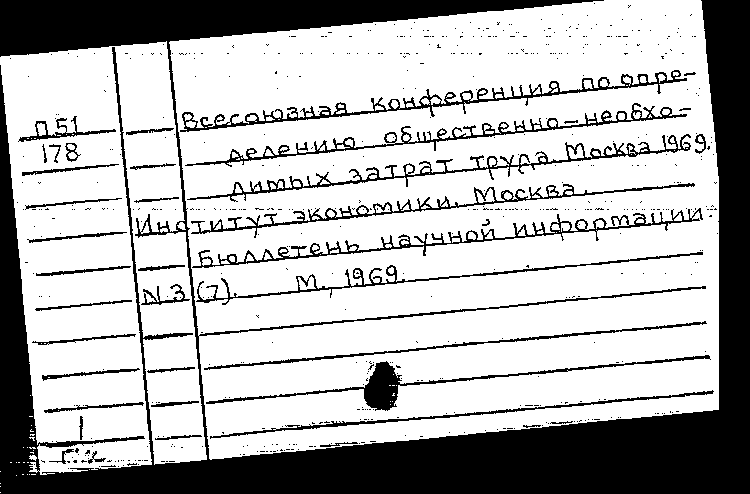 П51
178
Всесоюзная конференция по опре-
делению общественно-необхо-
димых затрат труда. Москва 1969.
Институт экономики. Москва.
Бюллетень научной информации.
N.3 (7). М., 1969.
1